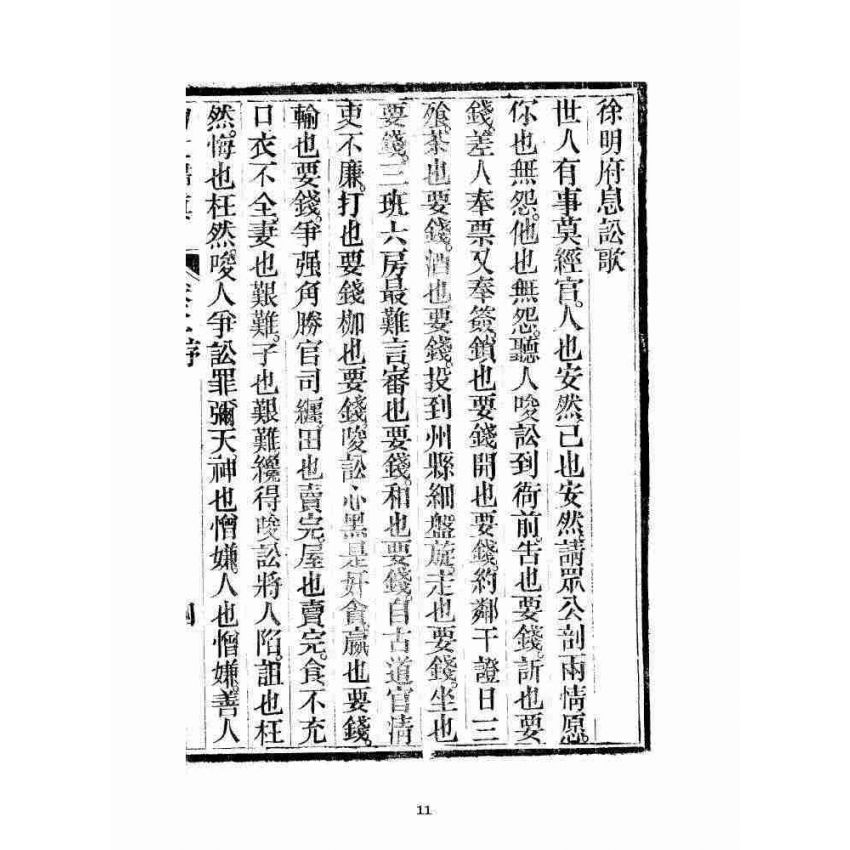 徐明府息訟歌
世人有事莫經官。人也安然。己也安然。請眾公剖兩情愿。
你也無怨。他也無怨。聽人唆訟到衙前。告也要錢。訴也要
錢。差人奉票又奉簽。鎖也要錢。開也要錢。約鄰干證日三
飱。茶也要錢。酒也要錢。投到州縣細盤旋。走也要錢。坐也
要錢。三班六房最難言。審也要錢。和也要錢。自古道官清
吏不廉。打也要錢。枷也要錢。唆訟心黑是奸貪。贏也要錢。
輸也要錢。爭强角勝官司纏。田也賣完。屋也賣完。食不充
口衣不全。妻也艱難。子也艱難。纔得唆訟將人陷。詛也枉
然。悔也枉然。唆人爭訟罪彌天。神也憎嫌。人也憎嫌。善人
序
四
11